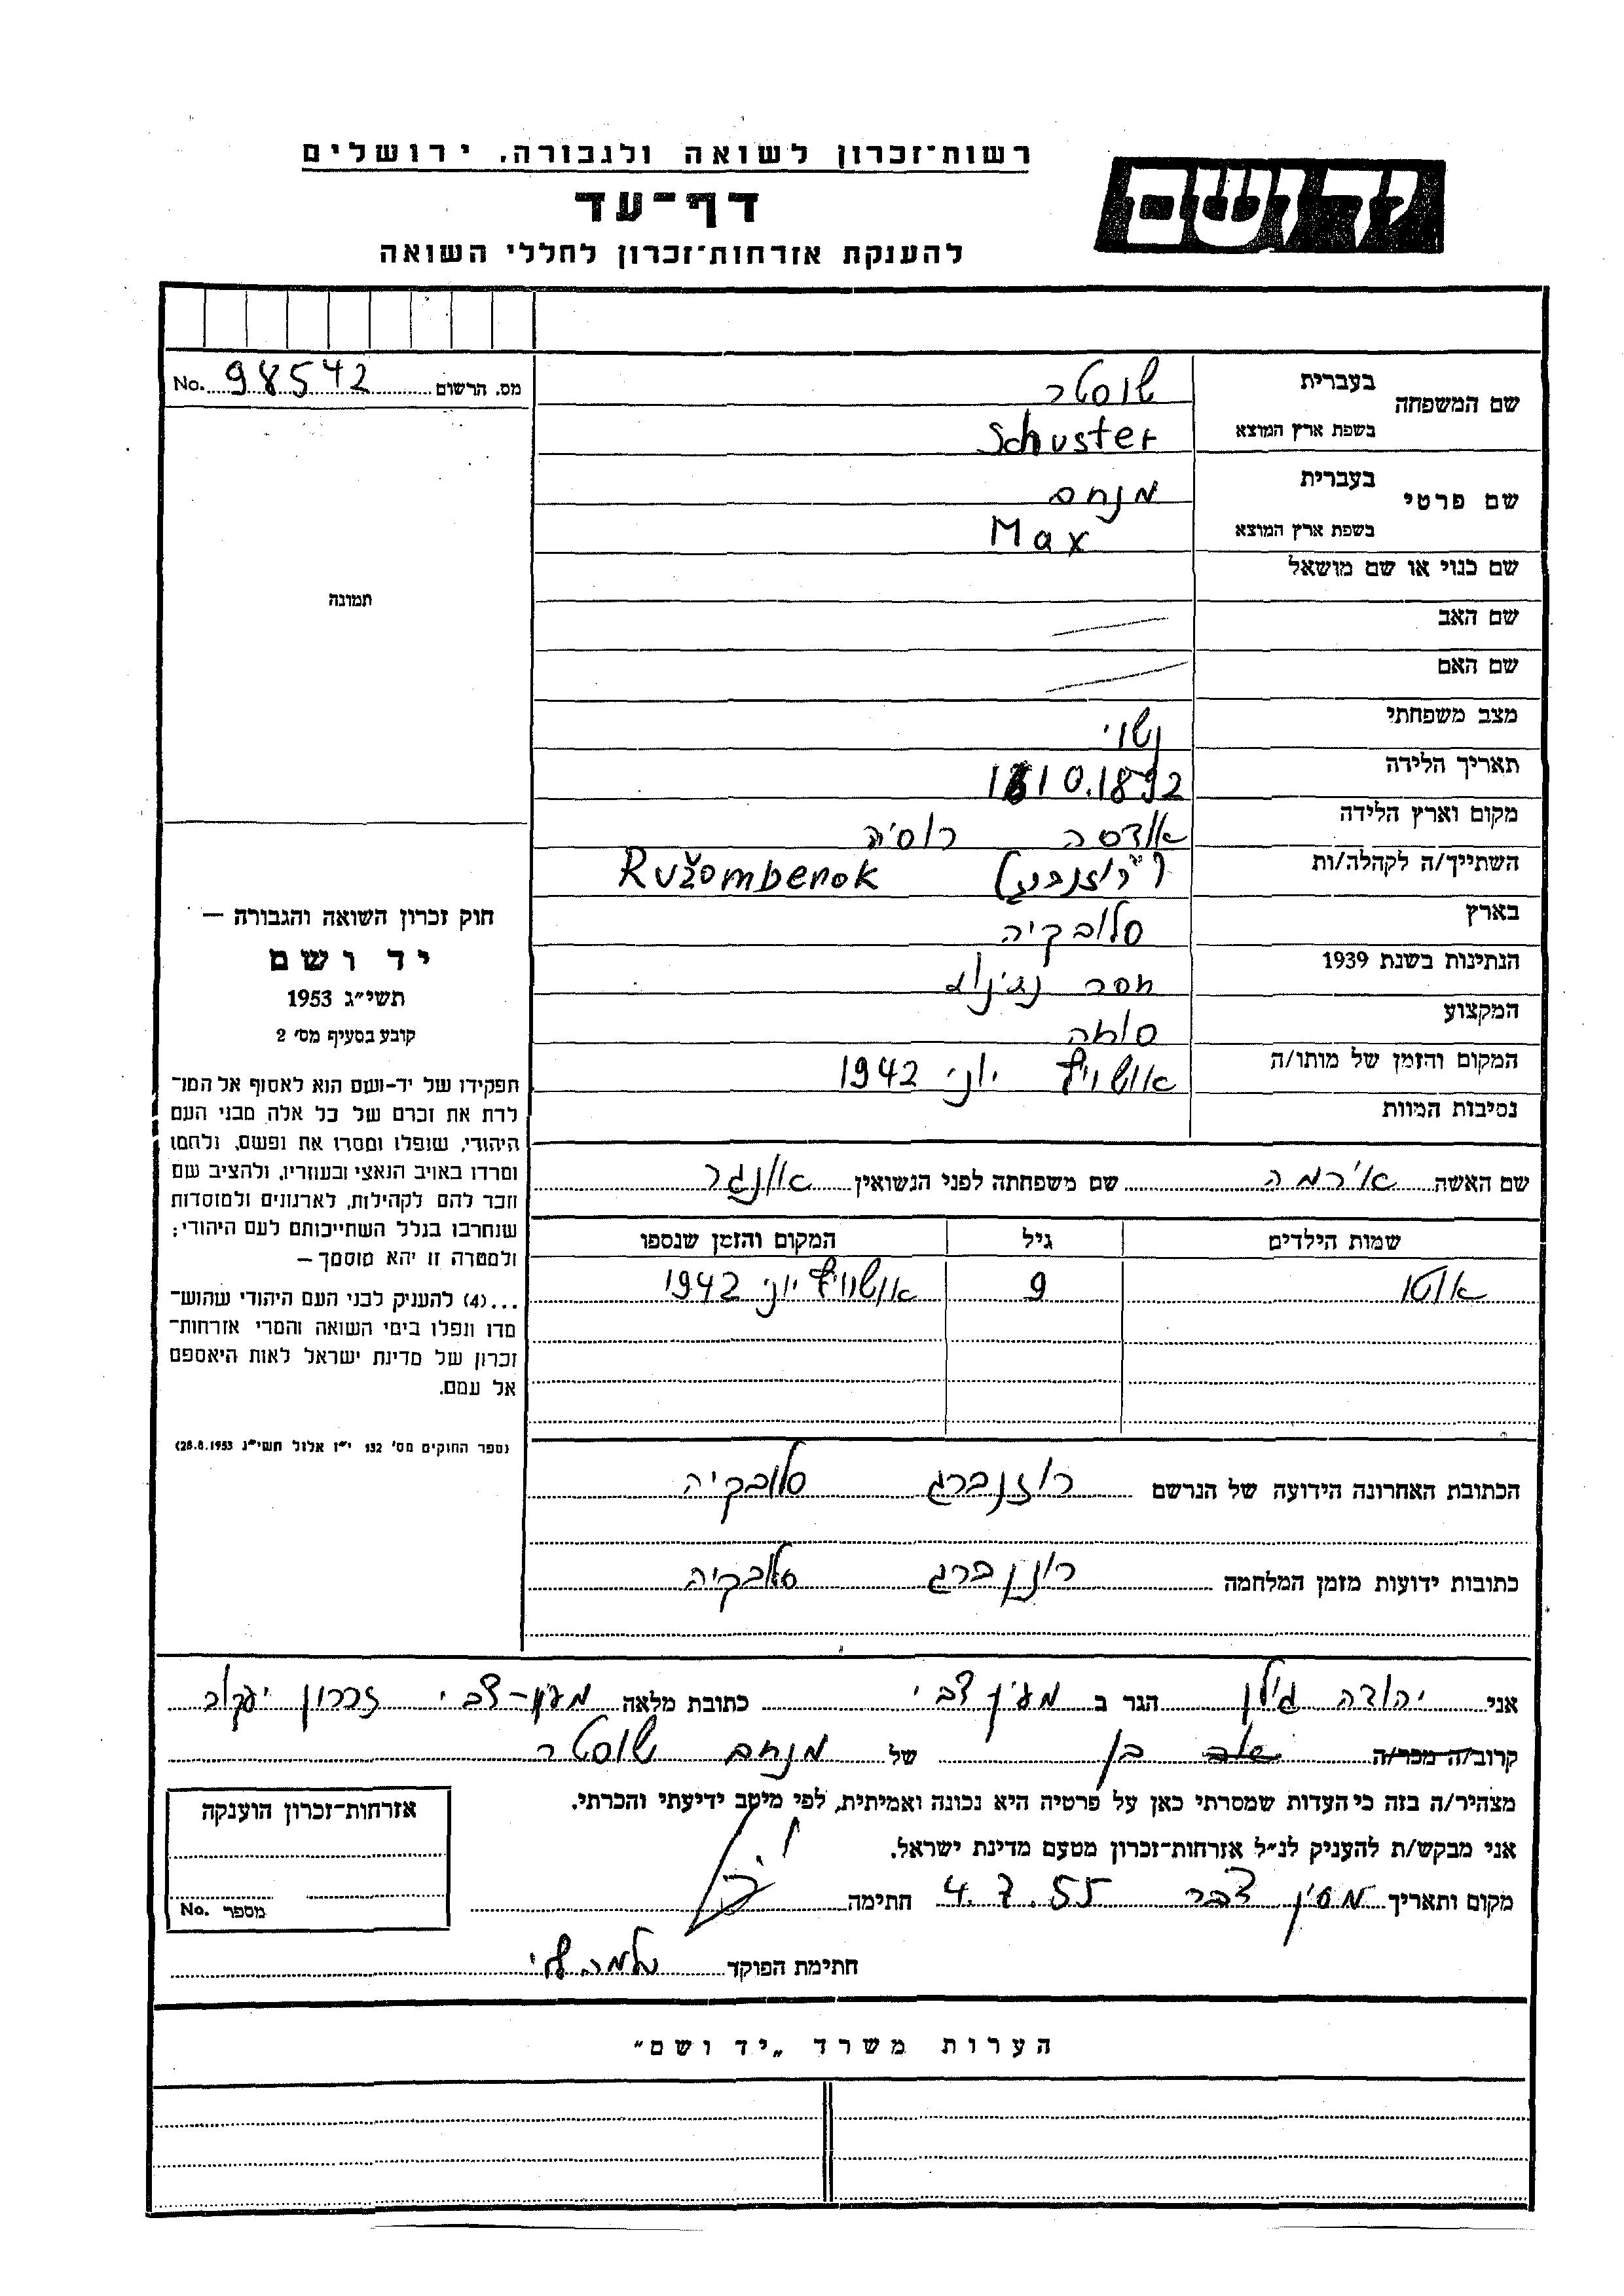 רשות־זכרון לשואה ולגבורה, ירושלים
יד ושם
דף־עד
להענקת אזרחות־זכרון לחללי השואה
מס. הרשום 98542 No.
שם המשפחה
בעברית שוסטר
בשפת ארץ המוצא Schuster
שם פרטי
בעברית מנחם
בשפת ארץ המוצא Max
שם כנוי או שם מושאל
תמונה
שם האב
שם האם
מצב משפחתי נשוי
תאריך הלידה 10.1892
מקום וארץ הלידה אודסה רוסיה
השתייך/ה לקהלה/ות (רוזנברג) Ružomberok
בארץ סלובקיה
הנתינות בשנת 1939 חסר נתינות
המקצוע סוחר
המקום והזמן של מותו/ה אושוויץ יוני 1942
נסיבות המוות
חוק זכרון השואה והגבורה —
יד ושם
תשי״ג 1953
קובע בסעיף מס׳ 2
תפקידו של יד-ושם הוא לאסוף אל המו־
לדת את זכרם של כל אלה מבני העם
היהודי, שנפלו ומסרו את נפשם, נלחמו
ומרדו באויב הנאצי ובעוזריו, ולהציב שם
וזכר להם לקהילות, לארגונים ולמוסדות
שנחרבו בגלל השתייכותם לעם היהודי;
ולמטרה זו יהא מוסמך —
...(4) להעניק לבני העם היהודי שהוש־
מדו ונפלו בימי השואה והמרי אזרחות־
זכרון של מדינת ישראל לאות היאספם
אל עמם.
(ספר החוקים מס׳ 132 י״ז אלול תשי״ג 28.8.1953)
שם האשה אירמה שם משפחתה לפני הנשואין אונגר
שמות הילדים גיל המקום והזמן שנספו
אוטו 9 אושוויץ יוני 1942
הכתובת האחרונה הידועה של הנרשם רוזנברג סלובקיה
כתובות ידועות מזמן המלחמה רוזנברג סלובקיה
אני יהודה גילן הגר ב מעין צבי כתובת מלאה מעין-צבי זכרון יעקב
קרוב/ה מכר/ה בן של מנחם שוסטר
מצהיר/ה בזה כי העדות שמסרתי כאן על פרטיה היא נכונה ואמיתית, לפי מיטב ידיעתי והכרתי.
אני מבקש/ת להעניק לנ״ל אזרחות־זכרון מטעם מדינת ישראל.
מקום ותאריך 4.7.55 חתימה
חתימת הפוקד
אזרחות־זכרון הוענקה
מספר No.
הערות משרד „יד ושם״